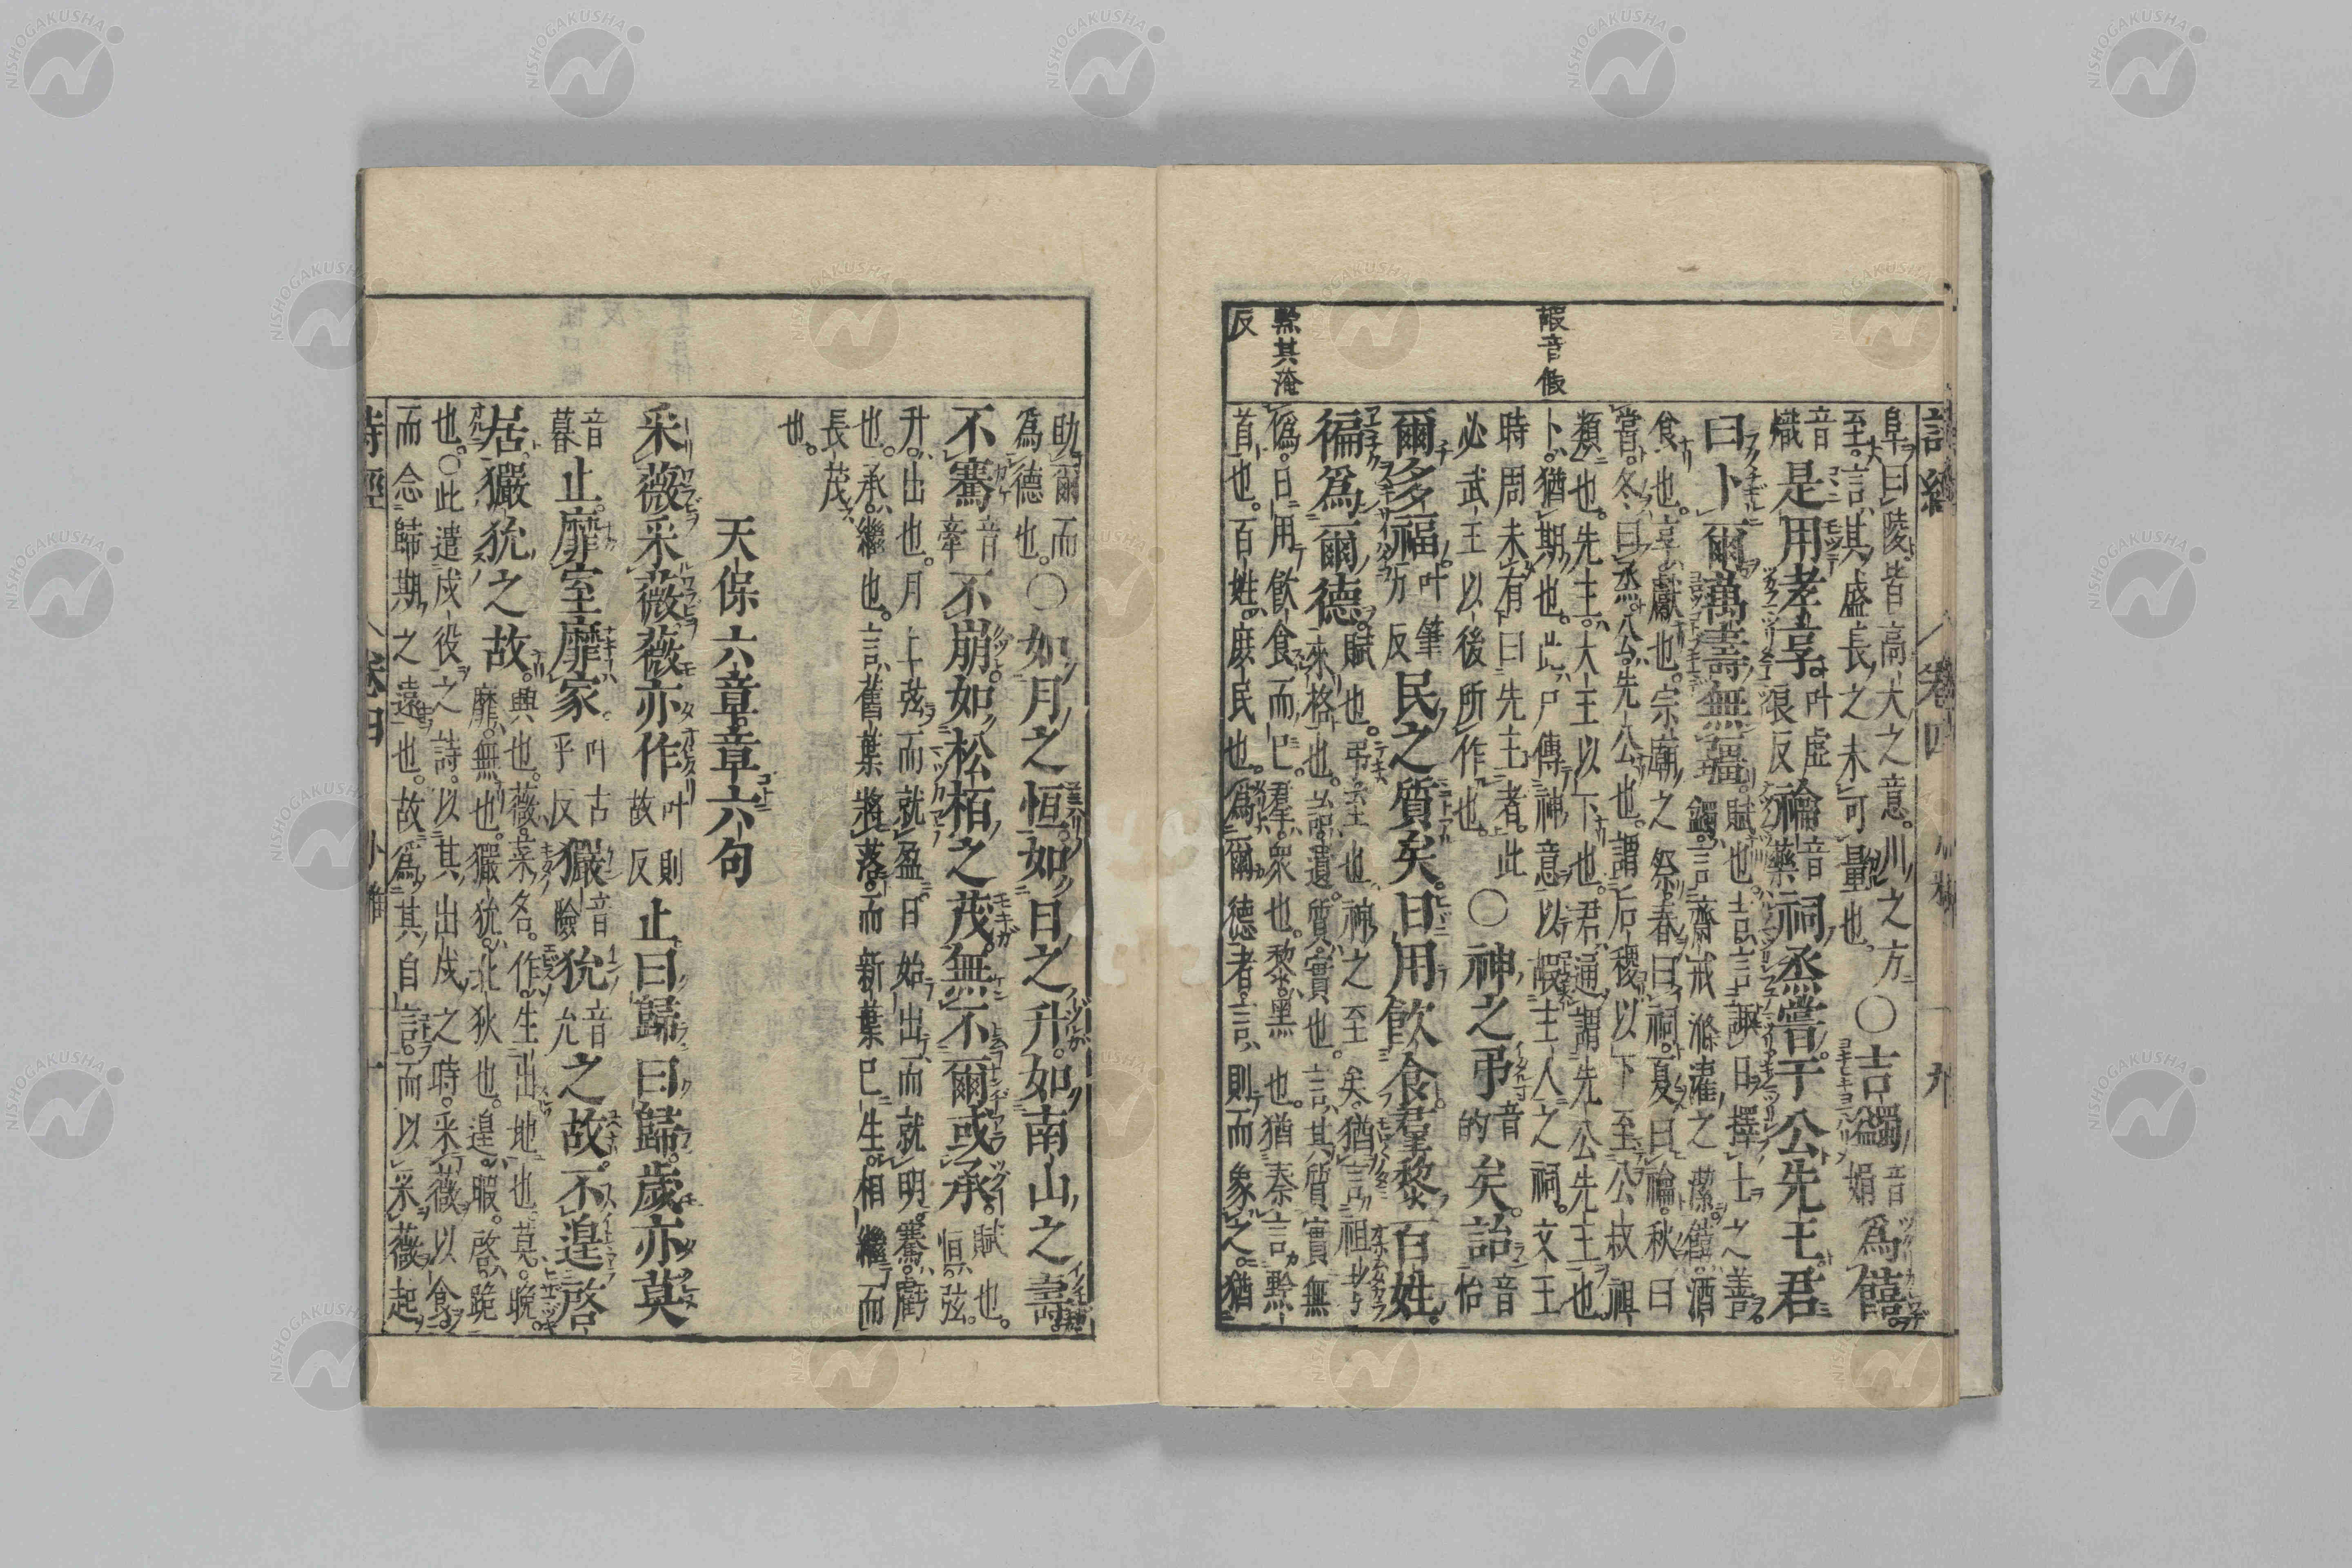 嘏音假
黔其淹
反
詩經 卷四 小雅 九
阜曰陵皆高大之意。川之方
至。言其盛長之未可量也。
○吉蠲音娟爲饎。
音熾是用孝享叶虛良反禴音藥祠烝嘗。于公先王。君
曰卜爾萬壽無疆。
賦也。吉言諏日擇士之善。
蠲言齋戒滌濯之潔。饎酒
食也。享獻也。宗廟之祭。春曰祠。夏曰禴。秋曰
嘗。冬曰烝。公先公也。謂后稷以下至公叔祖
類也。先王。大王以下也。君通謂先公先王也。
卜猶期也。此尸傳神意以嘏主人之詞。文王
時周未有曰先王者。此
必武王以後所作也。
○神之弔音的矣。詒音怡
爾多福叶筆方反民之質矣。日用飲食。羣黎百姓。
徧爲爾德。
賦也。弔至也。神之至矣。猶言祖考
來格也。詒遺。質實也。言其質實無
僞。日用飲食而已。羣衆也。黎黑也。猶秦言黔
首也。百姓庶民也。爲爾德者。言則而象之。猶
助爾而
爲德也。
○如月之恒。如日之升。如南山之壽。
不騫音牽不崩。如松栢之茂。無不爾或承。
賦也。
恒弦。
升出也。月上弦而就盈。日始出而就明。騫虧
也。承繼也。言舊葉將落。而新葉已生。相繼而
長茂
也。
天保六章章六句
采薇采薇。薇亦作叶則故反止。曰歸曰歸。歲亦莫
音暮止。靡室靡家。叶古乎反玁音險狁音允之故。不遑啓
居。玁狁之故。
興也。薇。菜名。作。生出地也。莫。晚。
靡。無也。玁狁。北狄也。遑。暇。啓。跪
也。○此遣戍役之詩。以其出戍之時。采薇以食。
而念歸期之遠也。故爲其自言。而以采薇起
詩經 卷四 小雅 十